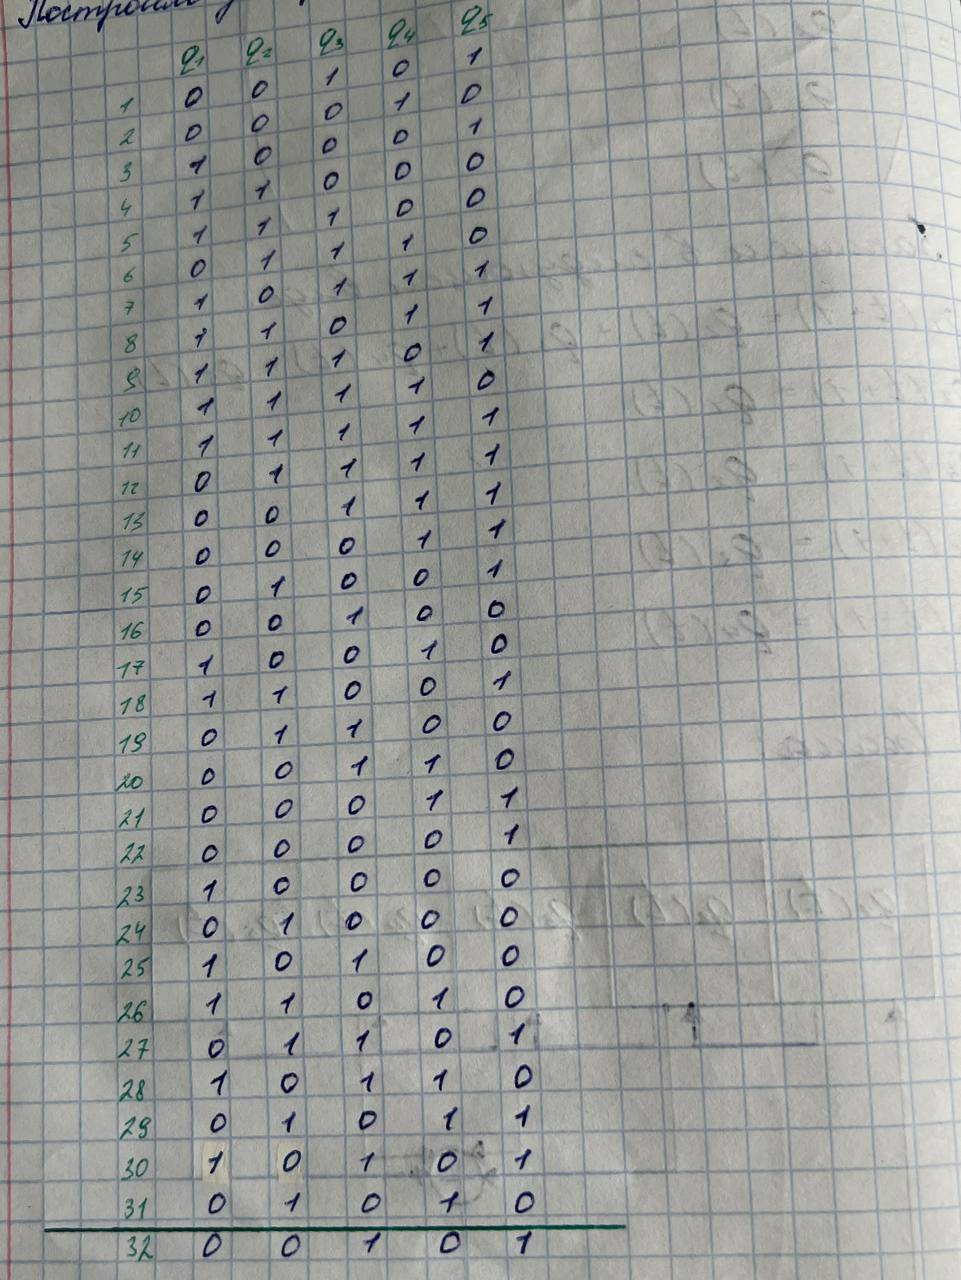 Построим
q₁ q₂ q₃ q₄ q₅
1 0 0 1 0 1
2 0 0 0 1 0
3 1 0 0 0 1
4 1 1 0 0 0
5 1 1 1 0 0
6 0 1 1 1 0
7 1 0 1 1 1
8 1 1 0 1 1
9 1 1 1 0 1
10 1 1 1 1 0
11 1 1 1 1 1
12 0 1 1 1 1
13 0 0 1 1 1
14 0 0 0 1 1
15 0 1 0 0 1
16 0 0 1 0 0
17 1 0 0 1 0
18 1 1 0 0 1
19 0 1 1 0 0
20 0 0 1 1 0
21 0 0 0 1 1
22 0 0 0 0 1
23 1 0 0 0 0
24 0 1 0 0 0
25 1 0 1 0 0
26 1 1 0 1 0
27 0 1 1 0 1
28 1 0 1 1 0
29 0 1 0 1 1
30 1 0 1 0 1
31 0 1 0 1 0
32 0 0 1 0 1